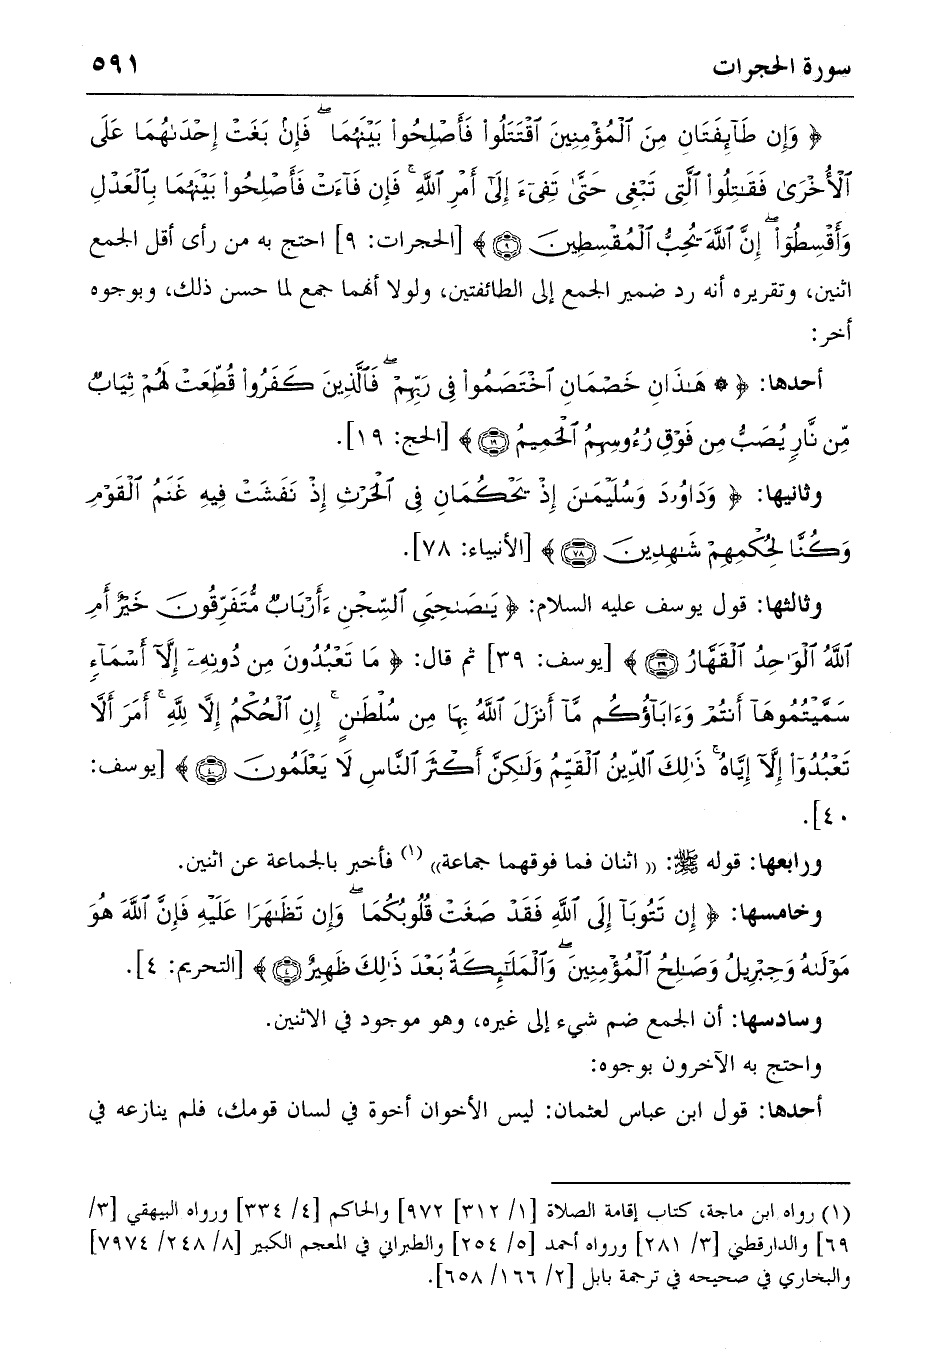 سورة الحجرات ٥٩١
﴿ وَإِن طَآئِفَتَانِ مِنَ ٱلْمُؤْمِنِينَ ٱقْتَتَلُوا۟ فَأَصْلِحُوا۟ بَيْنَهُمَا ۖ فَإِنۢ بَغَتْ إِحْدَىٰهُمَا عَلَى
ٱلْأُخْرَىٰ فَقَٰتِلُوا۟ ٱلَّتِى تَبْغِى حَتَّىٰ تَفِىٓءَ إِلَىٰٓ أَمْرِ ٱللَّهِ ۚ فَإِن فَآءَتْ فَأَصْلِحُوا۟ بَيْنَهُمَا بِٱلْعَدْلِ
وَأَقْسِطُوٓا۟ ۖ إِنَّ ٱللَّهَ يُحِبُّ ٱلْمُقْسِطِينَ ٩ ﴾ [الحجرات: ٩] احتج به من رأى أقل الجمع
اثنين، وتقريره أنه رد ضمير الجمع إلى الطائفتين، ولولا أنهما جمع لما حسن ذلك، وبوجوه
أخر:
أحدها: ﴿ ۞ هَٰذَانِ خَصْمَانِ ٱخْتَصَمُوا۟ فِى رَبِّهِمْ ۖ فَٱلَّذِينَ كَفَرُوا۟ قُطِّعَتْ لَهُمْ ثِيَابٌ
مِّن نَّارٍ يُصَبُّ مِن فَوْقِ رُءُوسِهِمُ ٱلْحَمِيمُ ١٩ ﴾ [الحج: ١٩].
وثانيها: ﴿ وَدَاوُۥدَ وَسُلَيْمَٰنَ إِذْ يَحْكُمَانِ فِى ٱلْحَرْثِ إِذْ نَفَشَتْ فِيهِ غَنَمُ ٱلْقَوْمِ
وَكُنَّا لِحُكْمِهِمْ شَٰهِدِينَ ٧٨ ﴾ [الأنبياء: ٧٨].
وثالثها: قول يوسف عليه السلام: ﴿ يَٰصَٰحِبَىِ ٱلسِّجْنِ ءَأَرْبَابٌ مُّتَفَرِّقُونَ خَيْرٌ أَمِ
ٱللَّهُ ٱلْوَٰحِدُ ٱلْقَهَّارُ ٣٩ ﴾ [يوسف: ٣٩] ثم قال: ﴿ مَا تَعْبُدُونَ مِن دُونِهِۦٓ إِلَّآ أَسْمَآءً
سَمَّيْتُمُوهَآ أَنتُمْ وَءَابَآؤُكُم مَّآ أَنزَلَ ٱللَّهُ بِهَا مِن سُلْطَٰنٍ ۚ إِنِ ٱلْحُكْمُ إِلَّا لِلَّهِ ۚ أَمَرَ أَلَّا
تَعْبُدُوٓا۟ إِلَّآ إِيَّاهُ ۚ ذَٰلِكَ ٱلدِّينُ ٱلْقَيِّمُ وَلَٰكِنَّ أَكْثَرَ ٱلنَّاسِ لَا يَعْلَمُونَ ٤٠ ﴾ [يوسف:
٤٠].
ورابعها: قوله ﷺ: «اثنان فما فوقهما جماعة» (١) فأخبر بالجماعة عن اثنين.
وخامسها: ﴿ إِن تَتُوبَآ إِلَى ٱللَّهِ فَقَدْ صَغَتْ قُلُوبُكُمَا ۖ وَإِن تَظَٰهَرَا عَلَيْهِ فَإِنَّ ٱللَّهَ هُوَ
مَوْلَىٰهُ وَجِبْرِيلُ وَصَٰلِحُ ٱلْمُؤْمِنِينَ ۖ وَٱلْمَلَٰٓئِكَةُ بَعْدَ ذَٰلِكَ ظَهِيرٌ ٤ ﴾ [التحريم: ٤].
وسادسها: أن الجمع ضم شيء إلى غيره، وهو موجود في الاثنين.
واحتج به الآخرون بوجوه:
أحدها: قول ابن عباس لعثمان: ليس الأخوان أخوة في لسان قومك، فلم ينازعه في
(١) رواه ابن ماجة، كتاب إقامة الصلاة [١/ ٣١٢] ٩٧٢] والحاكم [٤/ ٣٣٤] ورواه البيهقي [٣/
٦٩] والدارقطني [٣/ ٢٨١] ورواه أحمد [٥/ ٢٥٤] والطبراني في المعجم الكبير [٨/ ٢٤٨/ ٧٩٧٤]
والبخاري في صحيحه في ترجمة بابل [٢/ ١٦٦/ ٦٥٨].